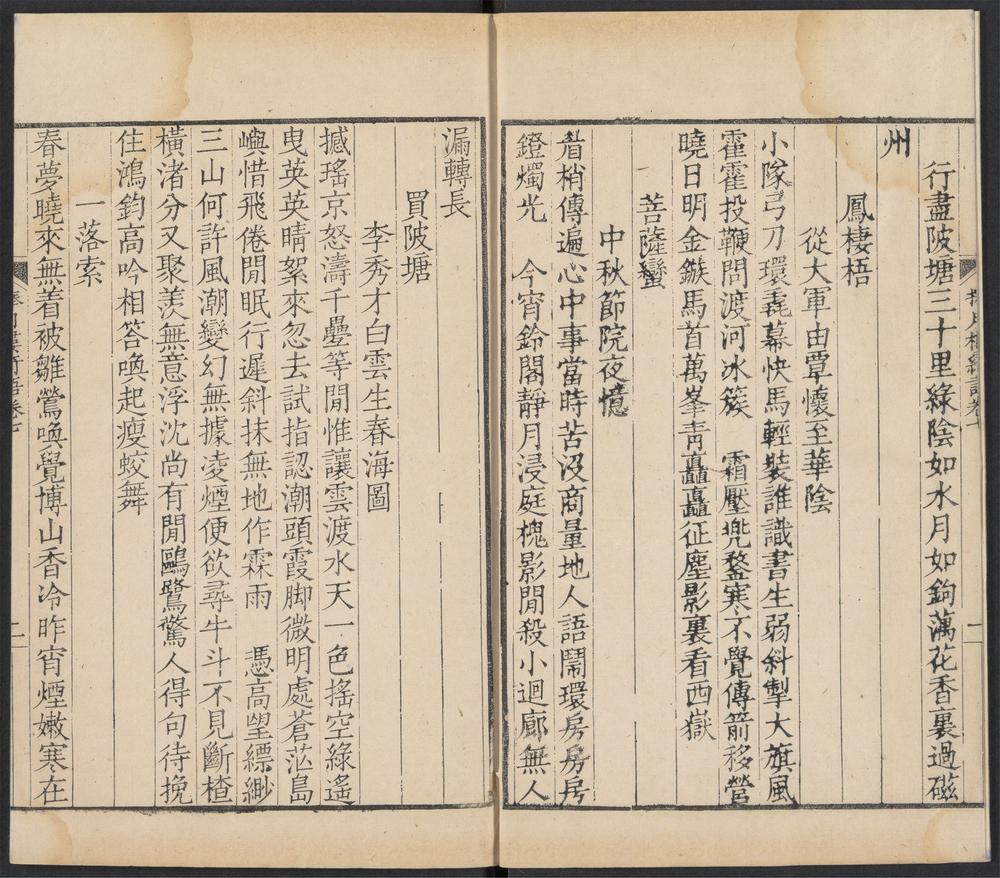 行盡陂塘三十里綠陰如水月如鉤藕花香裏過磁
州
鳳棲梧
從大軍由覃懷至華陰
小隊弓刀環毳幕快馬輕裝誰識書生弱斜掣大旗風
霍霍投鞭問渡河冰簇　霜壓兜鍪寒不覺傳箭移營
曉日明金鏃馬首萬峯靑矗矗征塵影裏看西嶽
菩薩蠻
中秋節院夜憶
眉梢傳遍心中事當時苦沒商量地人語鬧環房房房
鐙燭光　今宵鈴閣靜月浸庭槐影閒殺小迴廊無人
漏轉長
買陂塘
李秀才白雲生春海圖
撼瑤京怒濤千疊等閒惟讓雲渡水天一色搖空綠遙
曳英英晴絮來忽去試指認潮頭霞脚微明處蒼茫島
嶼惜飛倦閒眠行遲斜抹無地作霖雨　憑高望縹緲
三山何許風潮變幻無據凌煙便欲尋牛斗不見斷楂
橫渚分又聚羨無意浮沈尚有閒鷗鷺驚人得句待挽
住鴻鈞高吟相答喚起瘦蛟舞
一落索
春夢曉來無着被雛鶯喚覺博山香冷昨宵煙嫩寒在
二